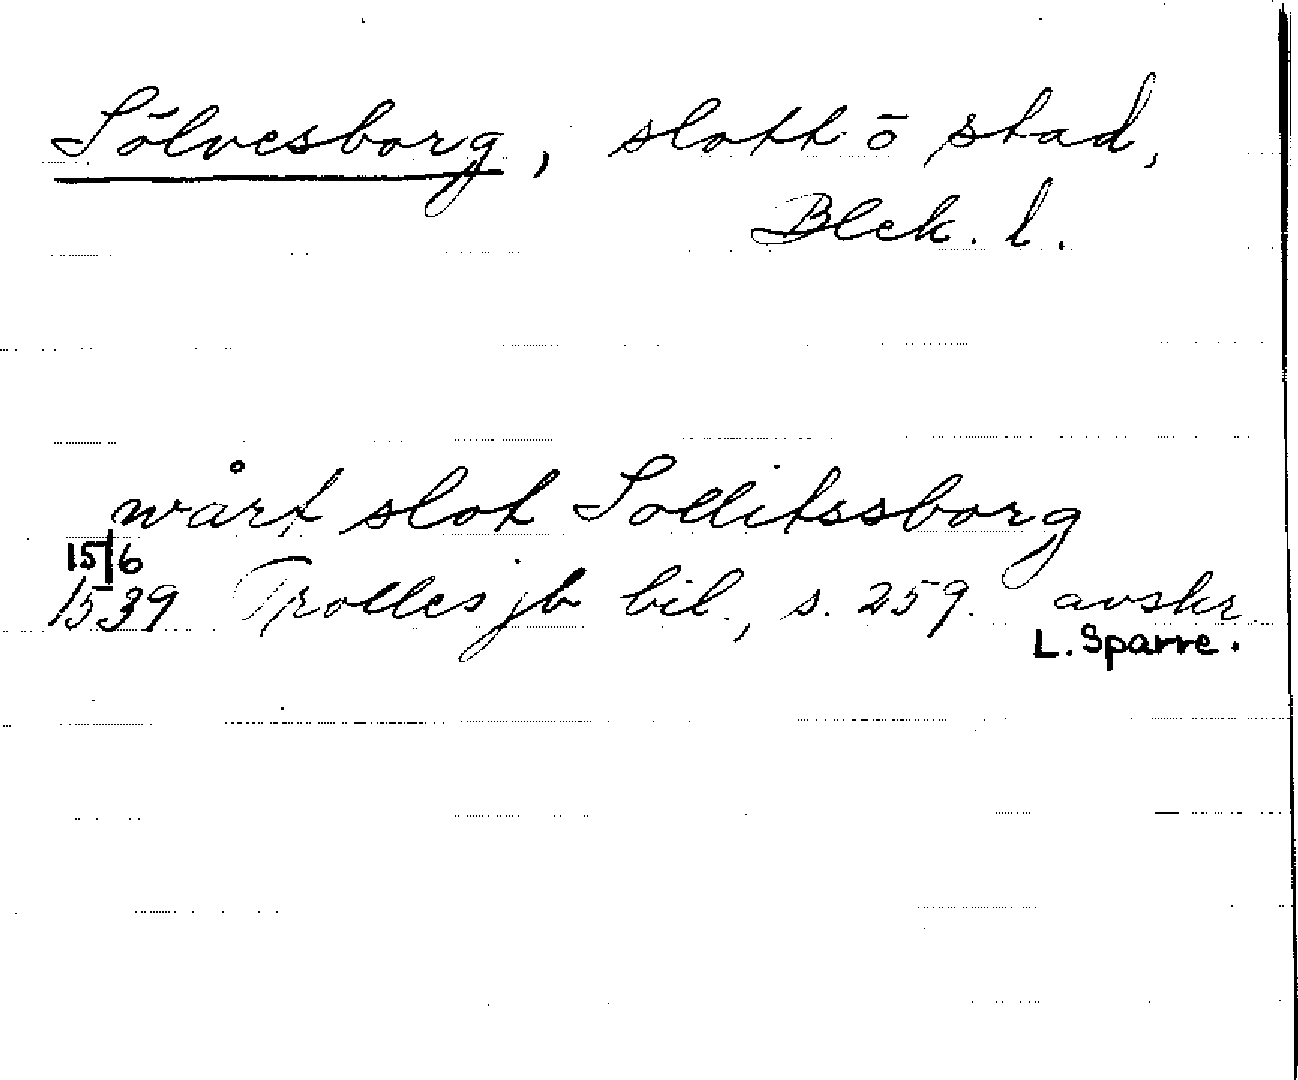 Sölvesborg, slott ō stad,
Blek. l.
wårt slot Sollitssborg
15/6
1539 Trolles jb bil., s. 259. avskr.
L. Sparre.